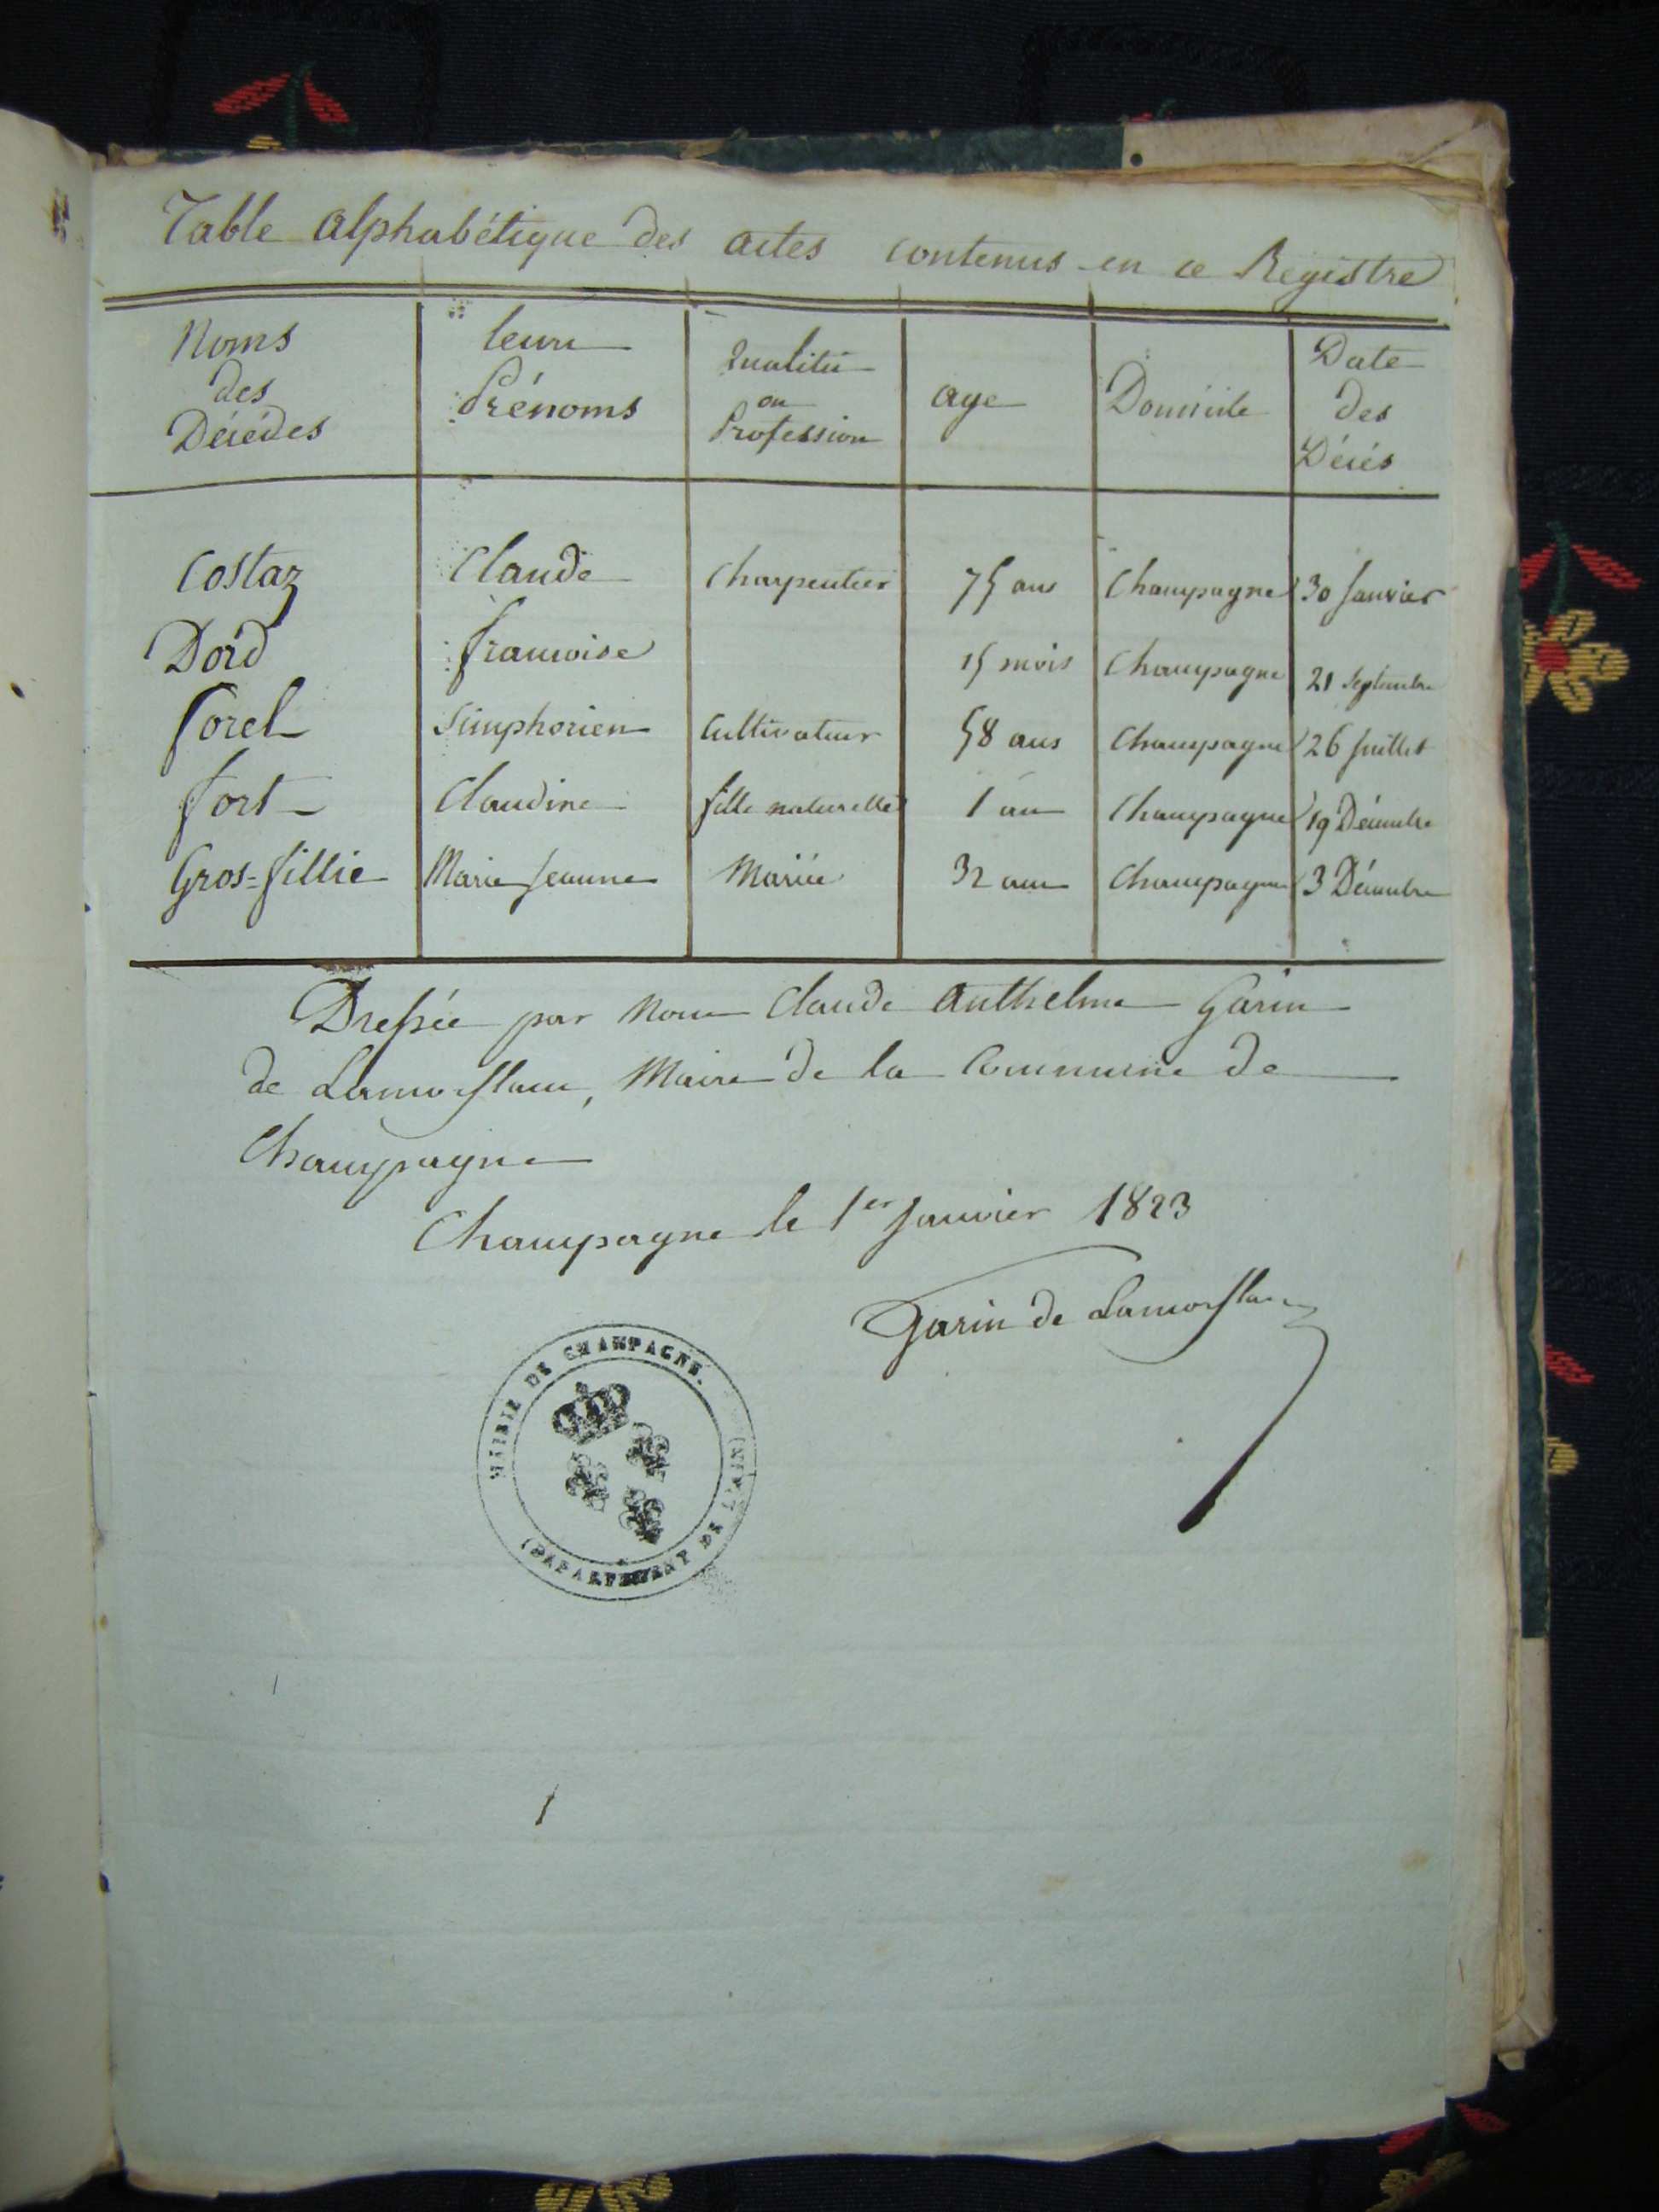 Table alphabétique des actes contenus en ce Registre
Noms des Décédés | leurs Prénoms | Qualités ou Profession | age | Domicile | Date des Décès
Costaz | Claude | Charpentier | 75 ans | Champagne | 30 Janvier
Dord | francoise | | 15 mois | Champagne | 21 Septembre
forel | Simphorien | Cultivateur | 58 ans | Champagne | 26 Juillet
fort | Claudine | fille naturelle | 1 an | Champagne | 19 Décembre
Gros=fillie | Marie Jeanne | Mariée | 32 ans | Champagne | 3 Décembre
Dressée par Nous Claude Anthelme Garin
de , Maire de la Commune de
Champagne
Champagne le 1er Janvier 1823
Garin de
MAIRIE DE CHAMPAGNE.
(DÉPARTEMENT DE L'AIN)